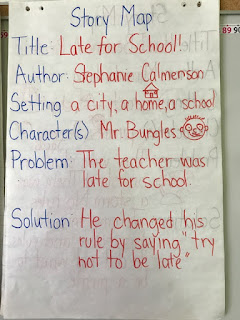 Story Map
Title: Late for School!
Author: Stephanie Calmenson
Setting a city, a home, a school
Character(s) Mr. Bungles
Problem: The teacher was
late for school.
Solution: He changed his
rule by saying "try
not to be late"